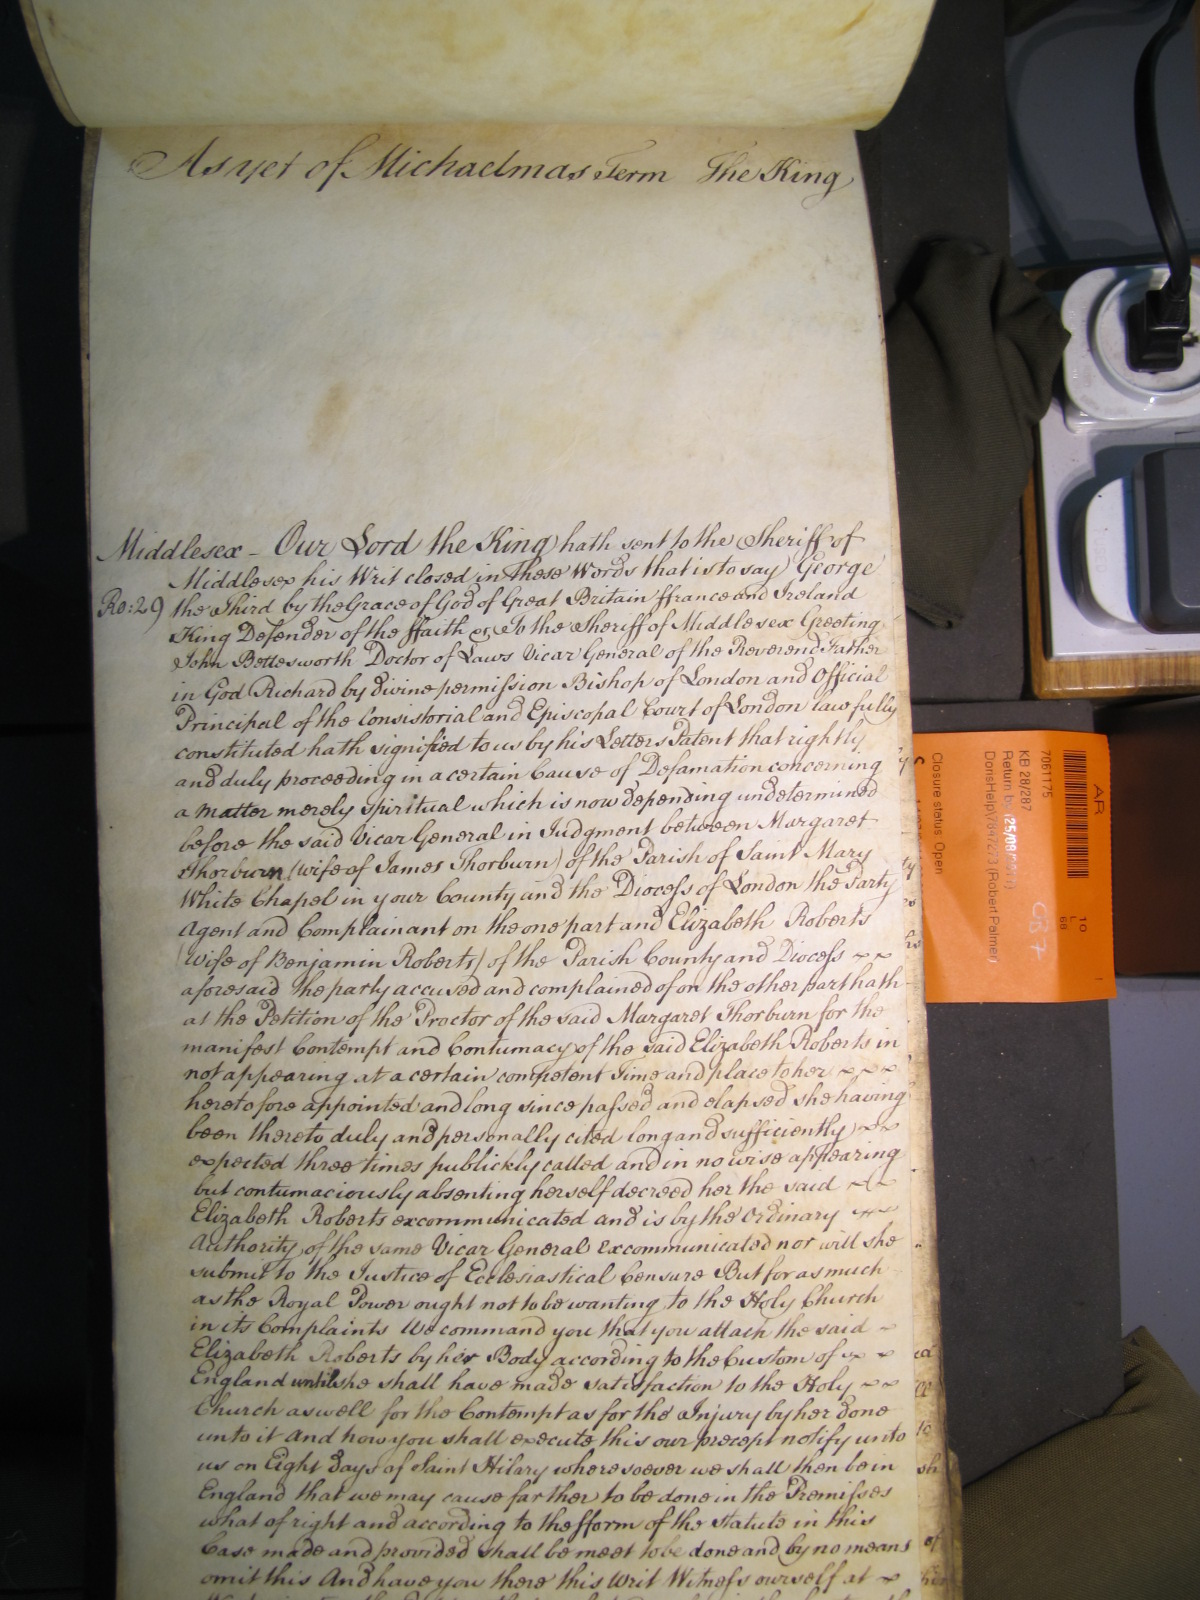 As yet of Michaelmas Term The King
Middlesex - Our Lord the King hath sent to the Sheriff of
Middlesex his Writ closed in These Words that is to say George
Ro: 29 the Third by the Grace of God of Great Britain ffrance and Ireland
King Defender of the ffaith &c To the Sheriff of Middlesex Greeting
John Bettesworth Doctor of Laws Vicar General of the Reverend Father
in God Richard by divine permission Bishop of London and Official
Principal of the Consistorial and Episcopal Court of London lawfully
constituted hath signified to us by his Letters Patent that rightly
and duly proceeding in a certain Cause of Defamation concerning
a matter merely spiritual which is now depending undetermined
before the said Vicar General in Judgment between Margaret
Thorburn (wife of James Thorburn) of the Parish of Saint Mary
White Chapel in your County and the Diocess of London the Party
Agent and Complainant on the one part and Elizabeth Roberts
(wife of Benjamin Roberts) of the Parish County and Diocess
aforesaid the party accused and complained of on the other part hath
at the Petition of the Proctor of the said Margaret Thorburn for the
manifest Contempt and Contumacy of the said Elizabeth Roberts in
not appearing at a certain competent Time and place to her
heretofore appointed and long since passed and elapsed she having
been thereto duly and personally cited long and sufficiently
expected three times publickly called and in no wise appearing
but contumaciously absenting herself decreed her the said
Elizabeth Roberts excommunicated and is by the Ordinary
Authority of the same Vicar General excommunicated nor will she
submit to the Justice of Ecclesiastical Censure But for as much
as the Royal Power ought not to be wanting to the Holy Church
in its Complaints We command you that you attach the said
Elizabeth Roberts by her Body according to the Custom of
England until she shall have made satisfaction to the Holy
Church as well for the Contempt as for the Injury by her done
unto it And how you shall execute this our precept notify unto
us on Eight days of Saint Hilary wheresoever we shall then be in
England that we may cause farther to be done in the Premisses
what of right and according to the fform of the statute in this
Case made and provided shall be meet to be done and by no means
omit this And have you there this Writ Witness ourself at
AR
7061175
KB 28/287
Closure status: Open